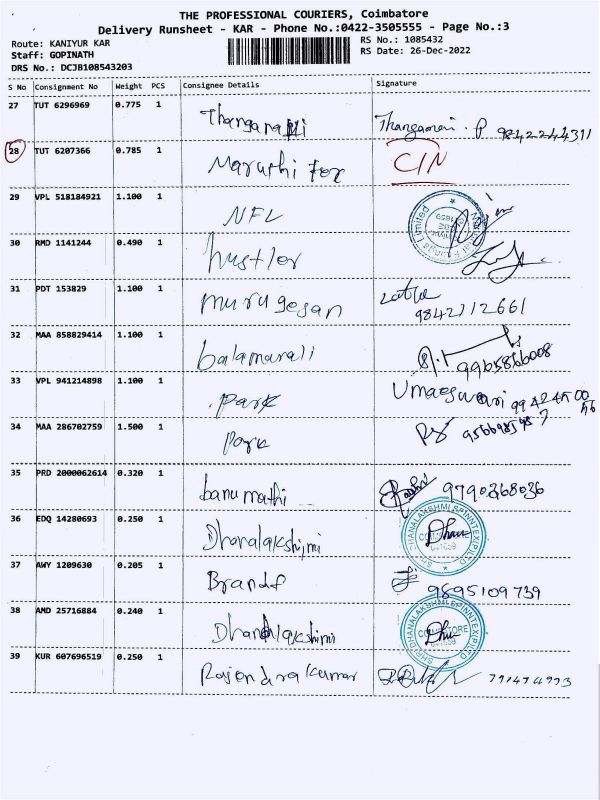 THE PROFESSIONAL COURIERS, Coimbatore
Delivery Runsheet - KAR - Phone No.:0422-3505555 - Page No.:3
Route: KANIYUR KAR
RS No.: 1085432
Staff: GOPINATH
RS Date: 26-Dec-2022
DRS No.: DCJB108543203
S No Consignment No Weight PCS Consignee Details Signature
27 TUT 6296969 0.775 1 Thangamani Thangamani. P 9842244311
28 TUT 6207366 0.785 1 Maruthi Tex C/N
29 VPL 518184921 1.100 1 NFL
30 RMD 1141244 0.490 1 hustler
31 PDT 153829 1.100 1 murugesan Latha
9842112661
32 MAA 858829414 1.100 1 balamurali 9965866008
33 VPL 941214898 1.100 1 Park Umaeswari
34 MAA 286702759 1.500 1 Park
35 PRD 2000062614 0.320 1 banumathi 9790368036
36 EDQ 14280693 0.250 1 Dhanalakshimi
SHRI DHANALAKSHMI SPINNTEX
37 AWY 1209630 0.205 1 Brands 9895109739
38 AMD 25716884 0.240 1 Dhanalakshimi
SHRI DHANALAKSHMI SPINNTEX
COIMBATORE
39 KUR 607696519 0.250 1 Rajendrakumar